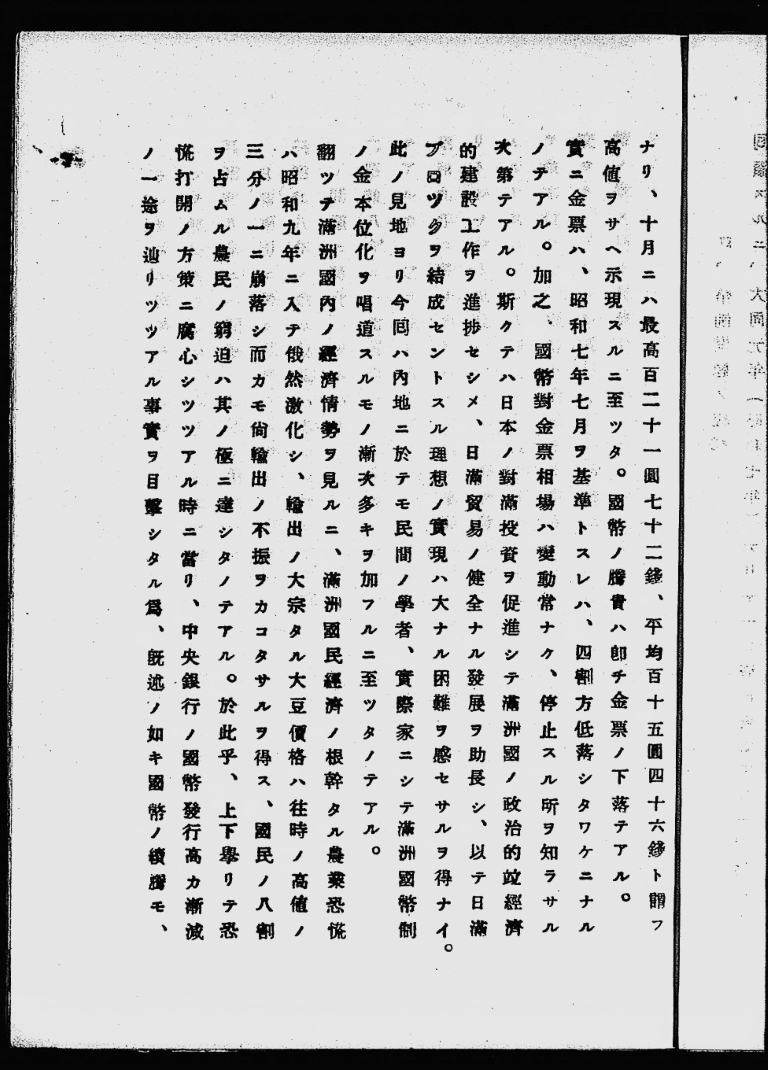 ナリ、十月ニハ最高百二十一圓七十二錢、平均百十五圓四十六錢ト謂フ
高値ヲサヘ示現スルニ至ツタ。國幣ノ騰貴ハ卽チ金票ノ下落テアル。
實ニ金票ハ、昭和七年七月ヲ基準トスレハ、四割方低落シタワケニナル
ノテアル。加之、國幣對金票相場ハ變動常ナク、停止スル所ヲ知ラサル
次第テアル。斯クテハ日本ノ對滿投資ヲ促進シテ滿洲國ノ政治的竝經濟
的建設工作ヲ進捗セシメ、日滿貿易ノ健全ナル發展ヲ助長シ、以テ日滿
ブロツクヲ結成セントスル理想ノ實現ハ大ナル困難ヲ感セサルヲ得ナイ。
此ノ見地ヨリ今回ハ內地ニ於テモ民間ノ學者、實際家ニシテ滿洲國幣制
ノ金本位化ヲ唱道スルモノ漸次多キヲ加フルニ至ツタノテアル。
翻ツテ滿洲國內ノ經濟情勢ヲ見ルニ、滿洲國民經濟ノ根幹タル農業恐慌
ハ昭和九年ニ入テ俄然激化シ、輸出ノ大宗タル大豆價格ハ往時ノ高値ノ
三分ノ一ニ崩落シ而カモ尙輸出ノ不振ヲカコタサルヲ得ス、國民ノ八割
ヲ占ムル農民ノ窮迫ハ其ノ極ニ達シタノテアル。於此乎、上下擧リテ恐
慌打開ノ方策ニ腐心シツツアル時ニ當リ、中央銀行ノ國幣發行高カ漸減
ノ一途ヲ辿リツツアル事實ヲ目擊シタル爲、旣述ノ如キ國幣ノ續騰モ、